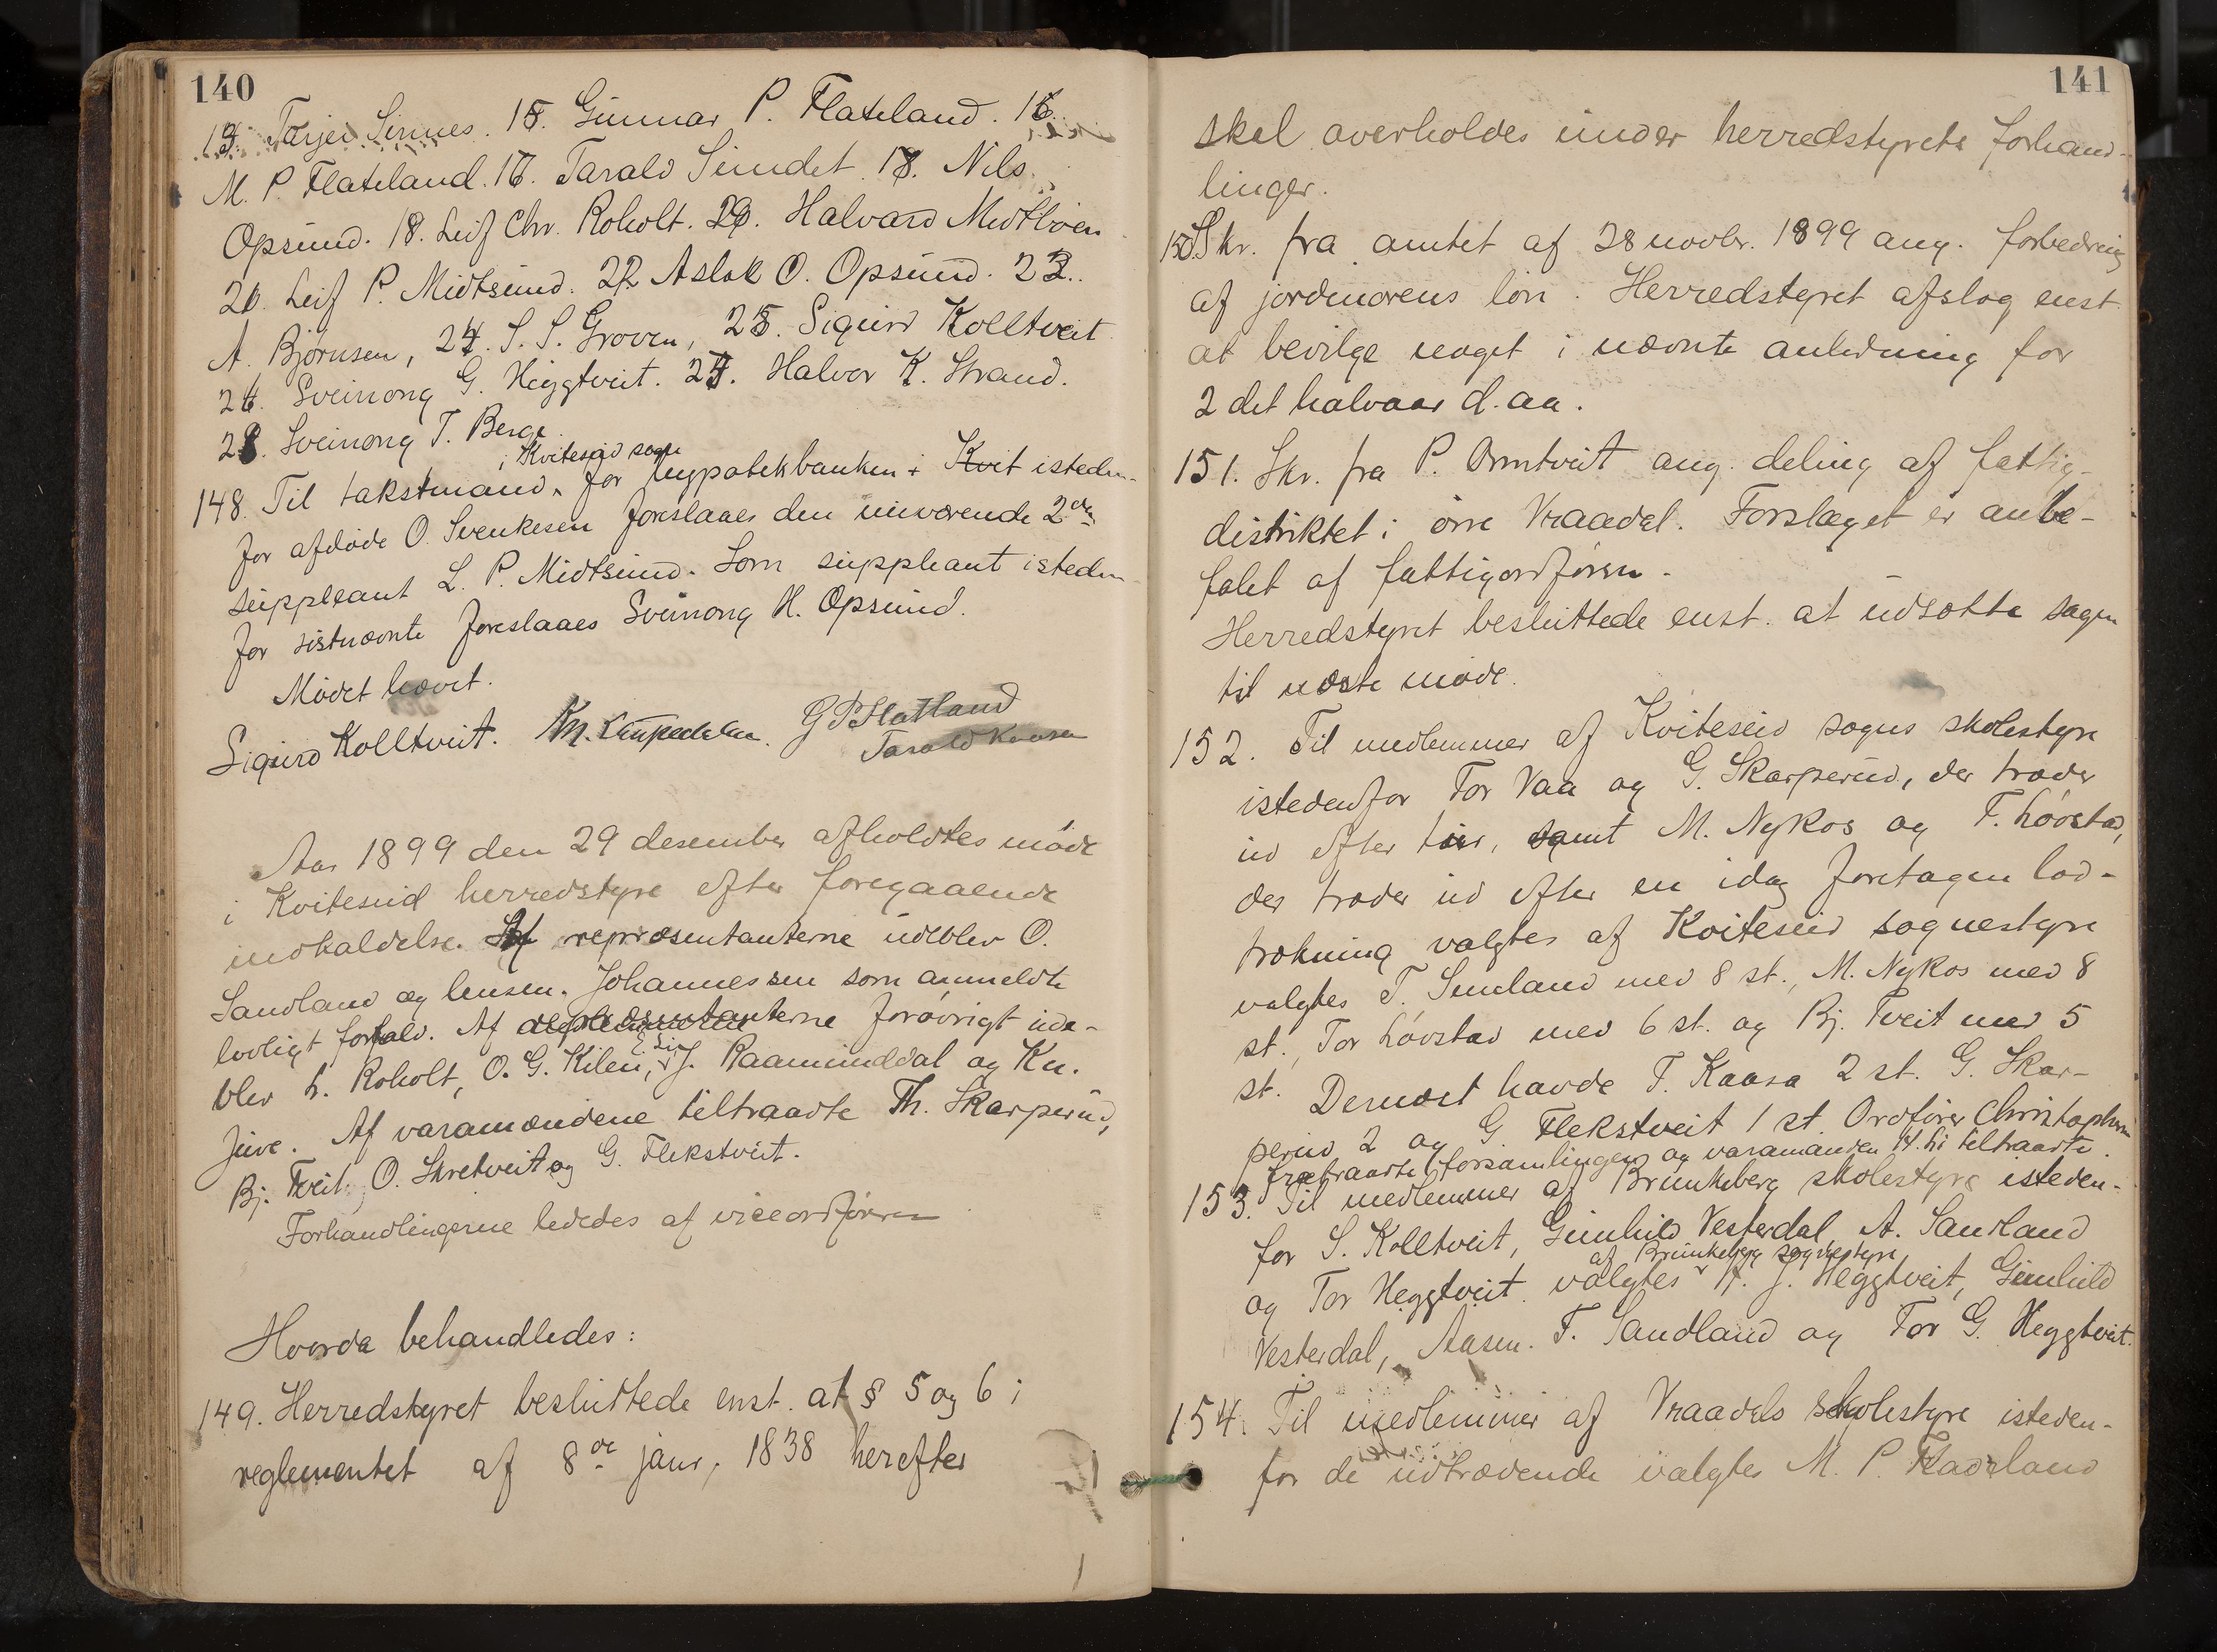 140
13. Tarjei Sinnes. 15. Gunnar P. Flateland. 16.
M. P. Flateland. 17. Tarald Sundet. 18. Nils
Opsund. 18. Leif Chr. Roholt. 20. Halvard Midtbøen
20. Leif P. Midtsund. 22 Aslak O. Opsund. 23.
A. Bjørnsen, 24. S. S. Groven, 25. Sigurd Kolltveit
26. Sveinong G. Heggtveit. 27. Halvor K. Strand.
28. Sveinong T. Berge.
i Kviteseid sogn
148. Til takstmand for hypotekbanken i Kvit isteden-
for afdøde O. Svenkesen foreslaaes den nuværende 2den
suppleant L. P. Midtsund. Som suppleant isteden-
for sistnævnte foreslaaes Sveinong H. Opsund.
Mødet hævet.
Sigurd Kolltveit. G P Flatland
Tarald Kaasa
Aar 1899 den 29 desember afholdtes møde
i Kviteseid herredstyre efter foregaaende
indkaldelse. Af repræsentanterne udeblev O.
Sandland og lensm. Johannessen som anmeldte
lovligt forfald. Af repræsentanterne forøvrigt ude-
blev L. Roholt, O. G. Kilen, J. Raamunddal og Kn.
Juve. Af varamændene tiltraadte Th. Skarperud,
Bj. Tveit, O. Skretveit og G. Flekstveit.
Forhandlingerne lededes af viceordføreren
Hvorda behandledes:
149. Herredstyret besluttede enst. at § 5 og 6 i
reglementet af 8de janr. 1838 herefter
141
skal overholdes under herredstyrets forhand-
linger.
150. Skr. fra amtet af 28 novbr. 1899 ang. forbedring
af jordmorens løn. Herredstyret afslog enst.
at bevilge noget i nævnte anledning for
2det halvaar d. aa.
151. Skr. fra P. Ormtveit ang. deling af fattig-
distriktet i øvre Vraadal. Forslaget er anbe-
falet af fattigordføren.
Herredstyret besluttede enst. at udsætte sagen
til næste møde.
152. Til medlemmer af Kviteseid sogns skolestyre
istedenfor Tor Vaa og G. Skarperud, der træder
ud efter tur, samt M. Nykos og T. Løvstad,
der træder ud efter en idag foretagen lod-
trækning valgtes af Kviteseid sognestyre
valgtes T. Sundland med 8 st., M. Nykos med 8
st., Tor Løvstad med 6 st. og Bj. Tveit med 5
st. Dernæst havde T. Kaasa 2 st. G. Skar-
perud 2 og G. Flekstveit 1 st. Ordfører Christophersen
fratraadte forsamlingen og varamanden H. Li tiltraadte.
153. Til medlemmer af Brunkeberg skolestyre isteden-
for S. Kolltveit, Gunhild Vesterdal, A. Sandland
af Brunkeberg sognestyre
og Tor Heggtveit valgtes H. J. Heggtveit, Gunhild
Vesterdal, Aasm. T. Sandland og Tor G. Heggtveit.
154. Til medlemmer af Vraadals skolestyre isteden-
for de udtrædende valgtes M. P. Flateland